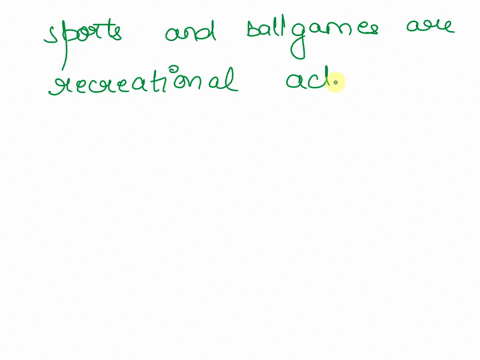 sports and ballgames are
recreational act